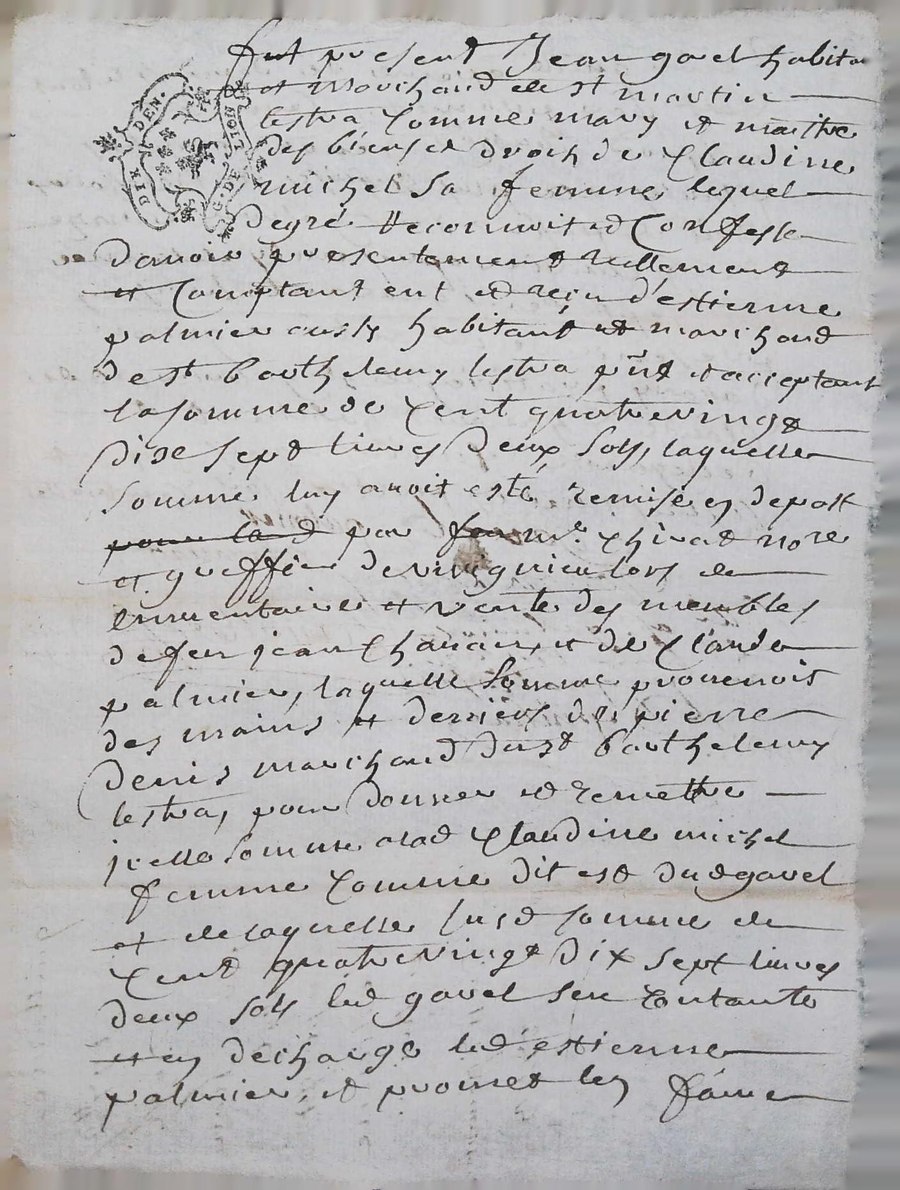 DIX DEN.
G. DE LION
fut present Jean gavel habita
et marchand de st martin
lestra comme mary et maitre
des biens et droits de Claudine
michel sa femme lequel
degré reconnoit et Confesse
d'avoir presentement reellement
et Comptant eut et reçu d'estienne
palmier aussy habitant et marchand
de st barthelemy lestra pnt et acceptant
la somme de cent quatrevingt
dix sept livres deux sols, laquelle
somme luy avoit esté remise en depost
pour lad par me Chirat nore
et greffier de lors de
inventaire et vente des meubles
de feu jean et de Claude
palmier, laquelle somme provenoit
des mains et deniers de pierre
denis marchand dud st barthelemy
lestra, pour donner et remettre
icelle somme alad Claudine michel
femme comme dit est dud gavel
et de laquelle susd somme de
cent quatrevingt dix sept livres
deux sols led gavel sen contante
et en décharge led estienne
palmier, et promet len faire